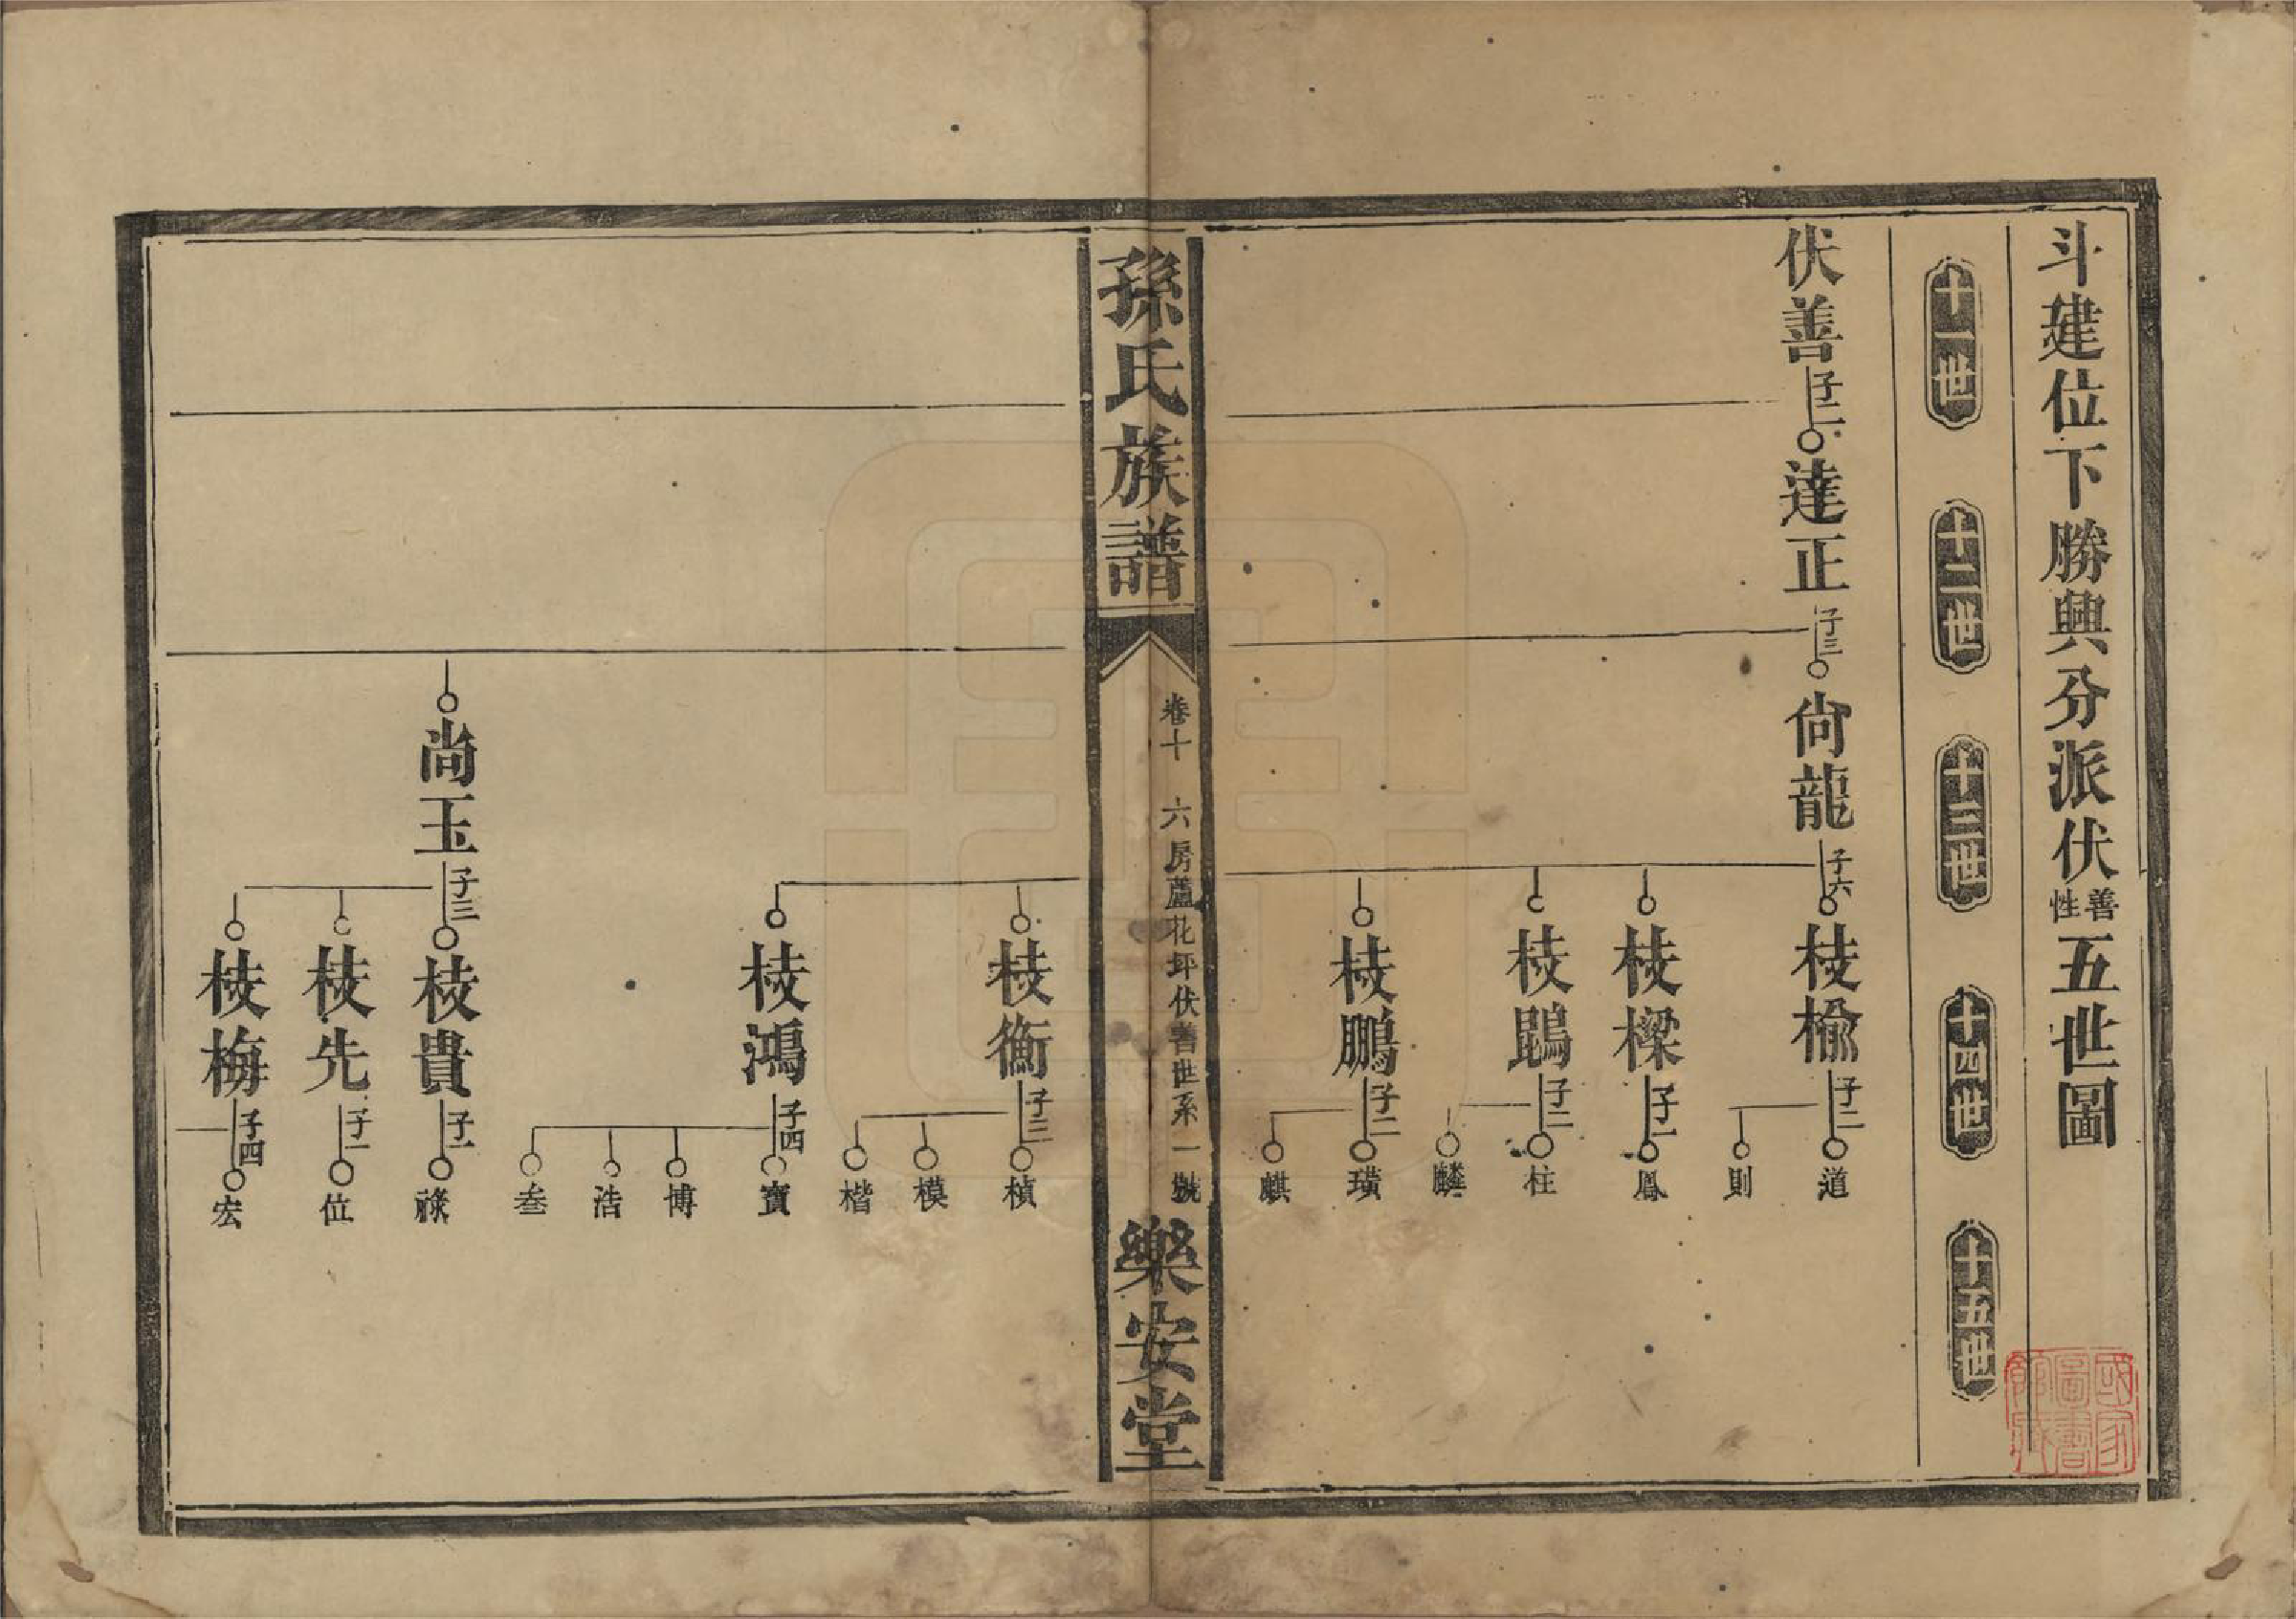 斗建位下勝興分派伏善性五世圖
十一世
十二世
十三世
十四世
十五世
伏善
子二
達正
子三
尙龍
子六
枝楡
子二
道
則
枝樑
子一
鳳
枝鵾
子二
柱
麟
枝鵬
子二
璜
麒
孫氏族譜
卷十
六房蘆花坪伏善世系一號
樂安堂
枝衡
子三
楨
模
楷
枝鴻
子四
寶
博
浩
叁
尚玉
子三
枝貴
子一
祿
枝先
子一
位
枝梅
子四
宏
國家圖書館藏